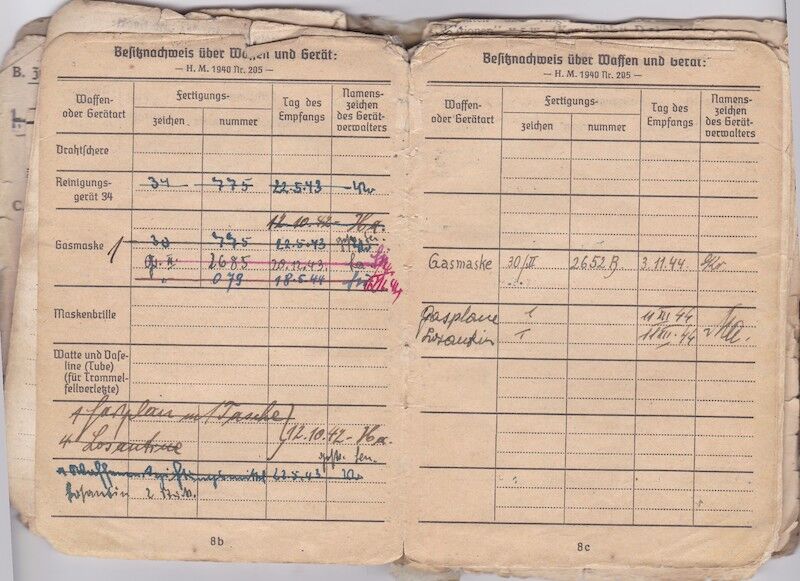 Besitznachweis über Waffen und Gerät:
— H. M. 1940 Nr. 205 —
Waffen- oder Geräteart
Fertigungs-
zeichen
nummer
Tag des Empfangs
Namens- zeichen des Gerät- verwalters
Drahtschere
Reinigungs-
gerät 34
34 775 22.5.43
12.10.42 - Ha.
Gasmaske
30 775 22.5.43
2685 20.12.43
079 18.5.44
Maskenbrille
Watte und Vase-
line (Tube)
(für Trommel-
fellverletzte)
1 Gasplan m/Tasche
4 Losantine 12.10.42 - Ha.
22.5.43
Losantin 2
8b
Besitznachweis über Waffen und Gerät:
— H. M. 1940 Nr. 205 —
Waffen- oder Gerätart
Fertigungs-
zeichen
nummer
Tag des Empfangs
Namens- zeichen des Gerät- verwalters
Gasmaske 30/II 2652 B 3.11.44.
Gasplane 1 11 III 44
Losantin 1 11 III. 44
8c